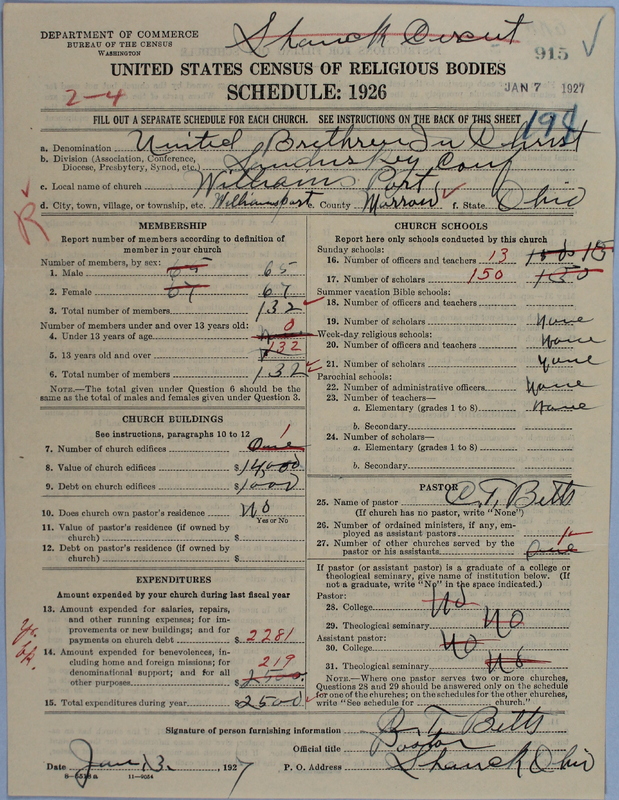 DEPARTMENT OF COMMERCE
BUREAU OF THE CENSUS
WASHINGTON
Shauck Circuit
915 ✓
UNITED STATES CENSUS OF RELIGIOUS BODIES
JAN 7 1927
2-4
SCHEDULE: 1926
FILL OUT A SEPARATE SCHEDULE FOR EACH CHURCH. SEE INSTRUCTIONS ON THE BACK OF THIS SHEET
a. Denomination United Brethren In Christ
b. Division (Association, Conference, Diocese, Presbytery, Synod, etc.) Sandusky Conf
c. Local name of church Williams Port
d. City, town, village, or township, etc. Williamsport e. County Morrow f. State Ohio
R
MEMBERSHIP
Report number of members according to definition of
member in your church
Number of members, by sex:
1. Male 65 65
2. Female 67 67
3. Total number of members 132
Number of members under and over 13 years old:
4. Under 13 years of age 0
5. 13 years old and over 132
6. Total number of members 132
NOTE.—The total given under Question 6 should be
same as the total of males and females given under Question 3.
CHURCH BUILDINGS
See instructions, paragraphs 10 to 12
7. Number of church edifices One 1
8. Value of church edifices $14,000
9. Debt on church edifices $1000
10. Does church own pastor's residence No
Yes or No
11. Value of pastor's residence (if owned by
church) $
12. Debt on pastor's residence (if owned by
church) $
EXPENDITURES
Amount expended by your church during last fiscal year
13. Amount expended for salaries, repairs,
and other running expenses; for im-
provements or new buildings; and for
payments on church debt $2281
14. Amount expended for benevolences, in-
cluding home and foreign missions; for
denominational support; and for all
other purposes $2500 219
15. Total expenditures during year $2500
CHURCH SCHOOLS
Report here only schools conducted by this church
Sunday schools:
16. Number of officers and teachers 13
17. Number of scholars 150 150
Summer vacation Bible schools:
18. Number of officers and teachers
19. Number of scholars None
Week-day religious schools:
20. Number of officers and teachers None
21. Number of scholars None
Parochial schools:
22. Number of administrative officers None
23. Number of teachers—
a. Elementary (grades 1 to 8) None
b. Secondary
24. Number of scholars—
a. Elementary (grades 1 to 8)
b. Secondary
PASTOR
25. Name of pastor C. T. Betts
(If church has no pastor, write "None")
26. Number of ordained ministers, if any, em-
ployed as assistant pastors
27. Number of other churches served by the
pastor or his assistants One
If pastor (or assistant pastor) is a graduate of a college or
theological seminary, give name of institution below. (If
not a graduate, write "No" in the space indicated.)
Pastor:
28. College No
29. Theological seminary No
Assistant pastor:
30. College No
31. Theological seminary No
NOTE.—Where one pastor serves two or more churches,
Questions 28 and 29 should be answered only on the schedule
for one of the churches; on the schedules for the other churches,
write "See schedule for church."
Signature of person furnishing information C. T. Betts
Official title Pastor
Date Jan 3. 1927 P. O. Address Shauck Ohio
6—5518a 11—9054